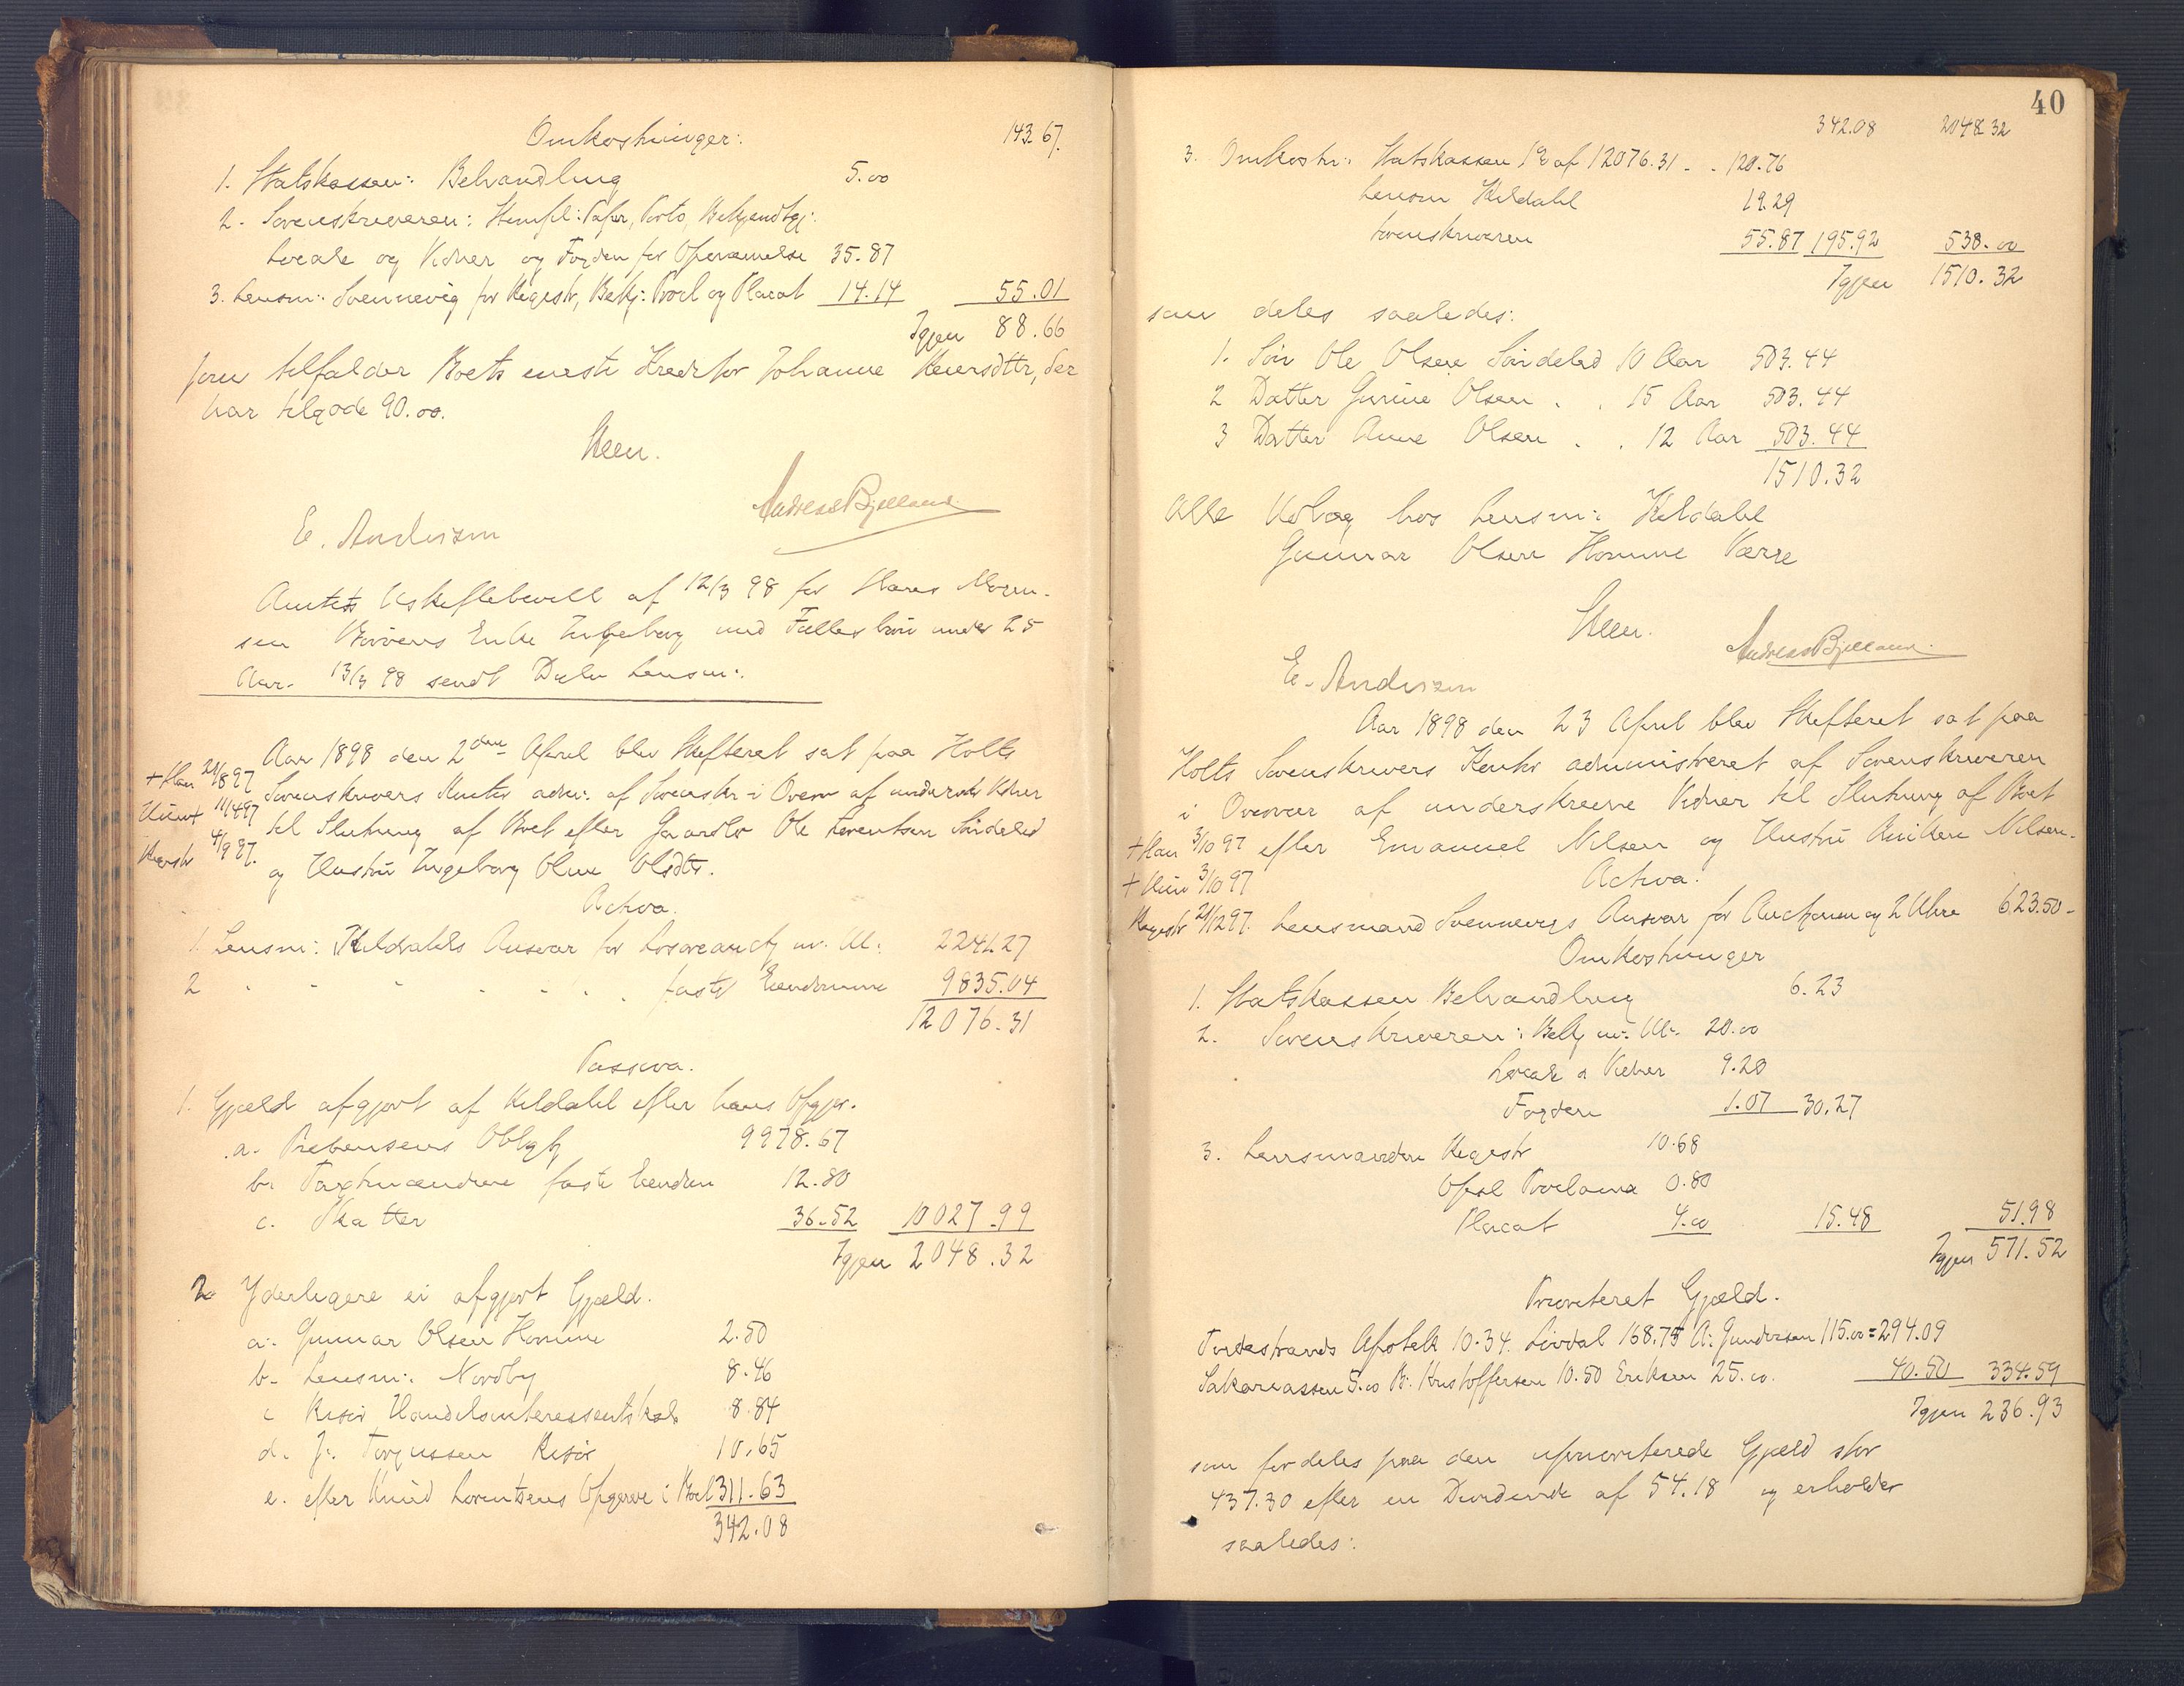 Omkostninger: 143.67.
1. Statskassen: Behandling 5.00
2. Sorenskriveren: Stempl: Papir, Porto, Bekjendtgj:
Locale og Vidner og Fogden for Opnævnelse 35.87
3. Lensm: Svennevig for Registr, Bekj: Procl og Placat 14.14 55.01
Igjen 88.66
som tilfalder Boets eneste Kreditor Johanne Reiersdttr, der
har tilgode 90.00.
Steen.
Andreas Bjelland
E. Andersen
Amtets Uskiftebevill af 12/3 98 for Hans Mogen-
sen Enke Ingeborg med Fællesbørn under 25
Aar. 13/3 98 sendt Lensm:.
Aar 1898 den 2den April blev Skifteret sat paa Holts
+ Man 21/8 97 Sorenskrivers Kontor adm: af Sorenskr i Overv af underskr Vidner
Hust 11/4 97 til Slutning af Boet efter Gaardbr Ole Lorentsen Søndeled
Registr 4/9 97. og Hustru Ingeborg Oline Olsdtr.
Activa.
1. Lensm: Kildahls Ansvar for Løsøreauct m. M: 2241.27
2 " " " " " " faste Eiendomme 9835.04
12076.31
Passiva.
1. Gjæld afgjort af Kildahl efter hans Opgjør.
a. Prebensens Obligtj 9978.67
b. Taxtmændene faste Eiendom 12.80
c. Skatter 36.52 10027.99
Igjen 2048.32
2. Yderligere ei afgjort Gjæld.
a. Gunnar Olsen Homme 2.50
b. Lensm: Nordby 8.46
c Risør Handelsinteressentskab 8.84
d. J: Torjussen Risør 10.65
e. efter Knud Lorentsens Opgave i Boet 311.63
342.08
40
342.08 2048.32
3. Omkostn: Statskassen 1% af 12076.31 . . 120.76
Lensm Kildahl 19.29
Sorenskriveren 55.87 195.92 538.00
Igjen 1510.32
som deles saaledes:
1. Søn Ole Olsen Søndeled 10 Aar 503.44
2 Datter Gurine Olsen . . 15 Aar 503.44
3 Datter Anne Olsen . . 12 Aar 503.44
1510.32
Alle Udlæg hos Lensm: Kildahl
Gunnar Olsen Homme Værge
Steen.
Andreas Bjelland.
E. Andersen
Aar 1898 den 23 April blev Skifteret sat paa
Holts Sorenskrivers Kontor administreret af Sorenskriveren
i Overvær af underskrevne Vidner til Slutning af Boet
+ Man 3/10 97 efter Emanuel Nilsen og Hustru Nilsen.
+ Hust 3/10 97 Activa.
Registr 21/12 97. Lensmand Svennevigs Ansvar for Auctionen og 2 Uhre 623.50
Omkostninger
1. Statskassen Behandling 6.23
2. Sorenskriveren: Bekj m: M: 20.00
Locale & Vidner 9.20
Fogden 1.07 30.27
3. Lensmanden Registr 10.68
Opsl Proclama 0.80
Placat 4.00 15.48 51.98
Igjen 571.52
Prioriteret Gjæld.
Tvedestrands Apothek 10.34. Lovdal 168.75 A: Gundersen 115.00 = 294.09
Sakariassen 5.00 B: Kristoffersen 10.50 Eriksen 25.00. 40.50 334.59
Igjen 236.93
som fordeles paa den uprioriterede Gjæld stor
437.30 efter en Dividende af 54.18 og erholder
saaledes: